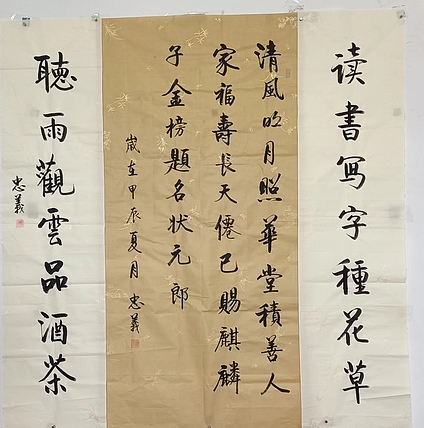 读書写字種花草
清風明月照華堂積善人
家福壽長天僊已賜麒麟
子金榜題名狀元郎
歲在甲辰夏月 忠義
聽雨觀雲品酒茶
忠義